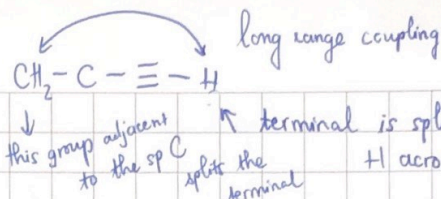 long range coupling
CH₂ - C - ≡ - H
this group adjacent
to the sp C
splits the
terminal
terminal is spl
H acro